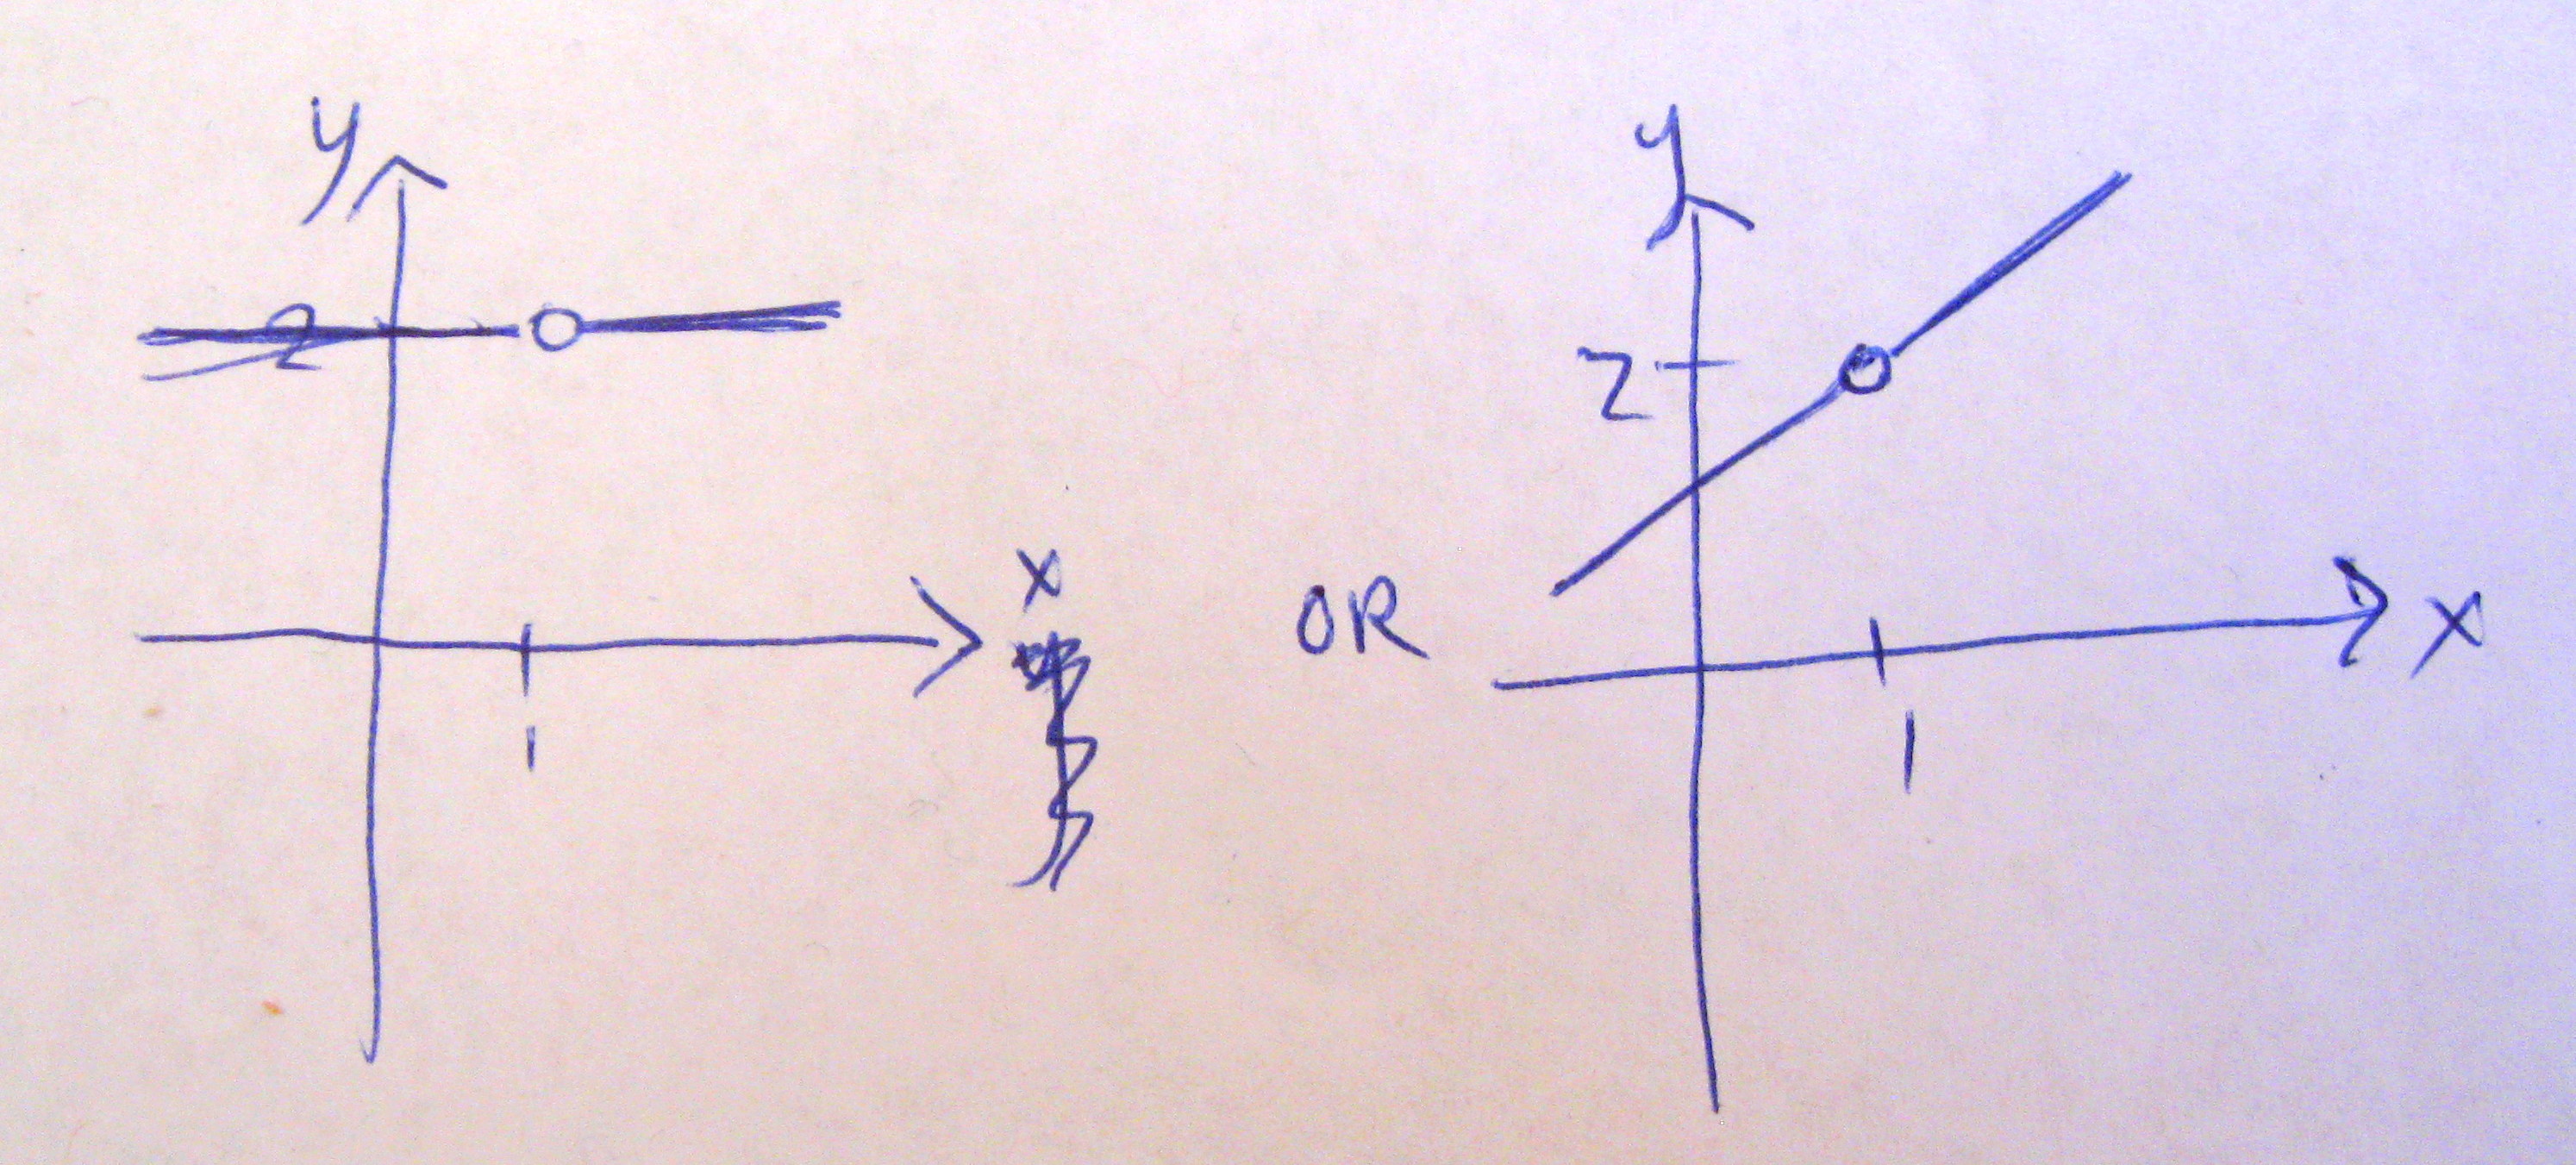 y
2
x
1
OR
y
2
x
1